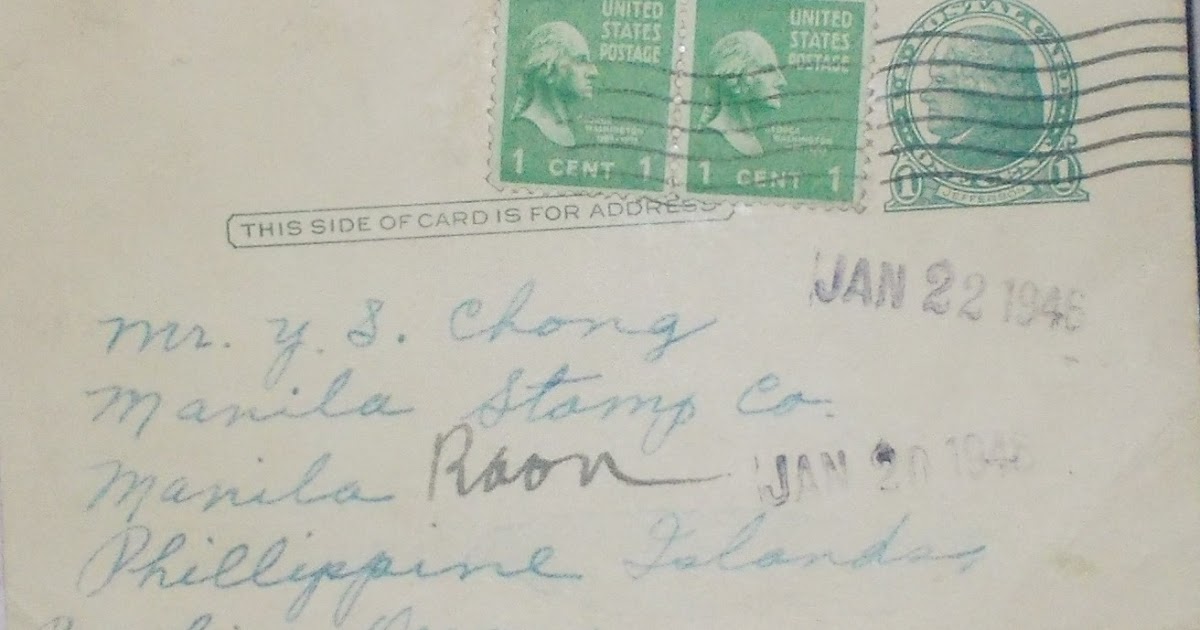 UNITED
STATES
POSTAGE
1 CENT 1
UNITED
STATES
POSTAGE
1 CENT 1
POSTAL
1 1
JEFFERSON
THIS SIDE OF CARD IS FOR ADDRESS
JAN 22 1946
Mr. Y. S. Chong
Manila Stamp Co.
Manila Raon
JAN 20 1946
Phillippine Islands